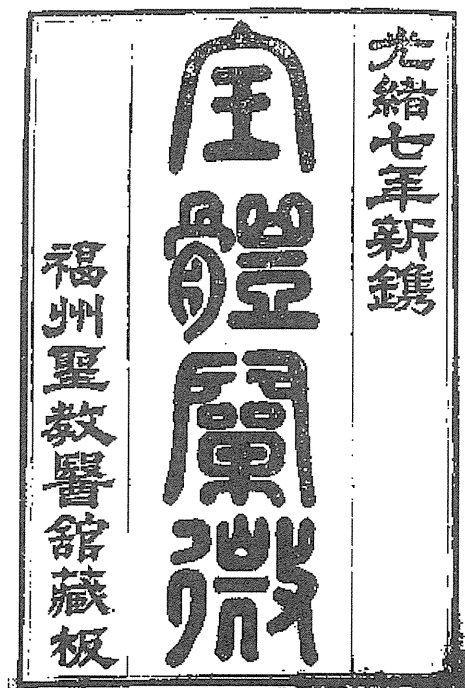 光緒七年新鐫
全體闡微
福州聖教醫舘藏板